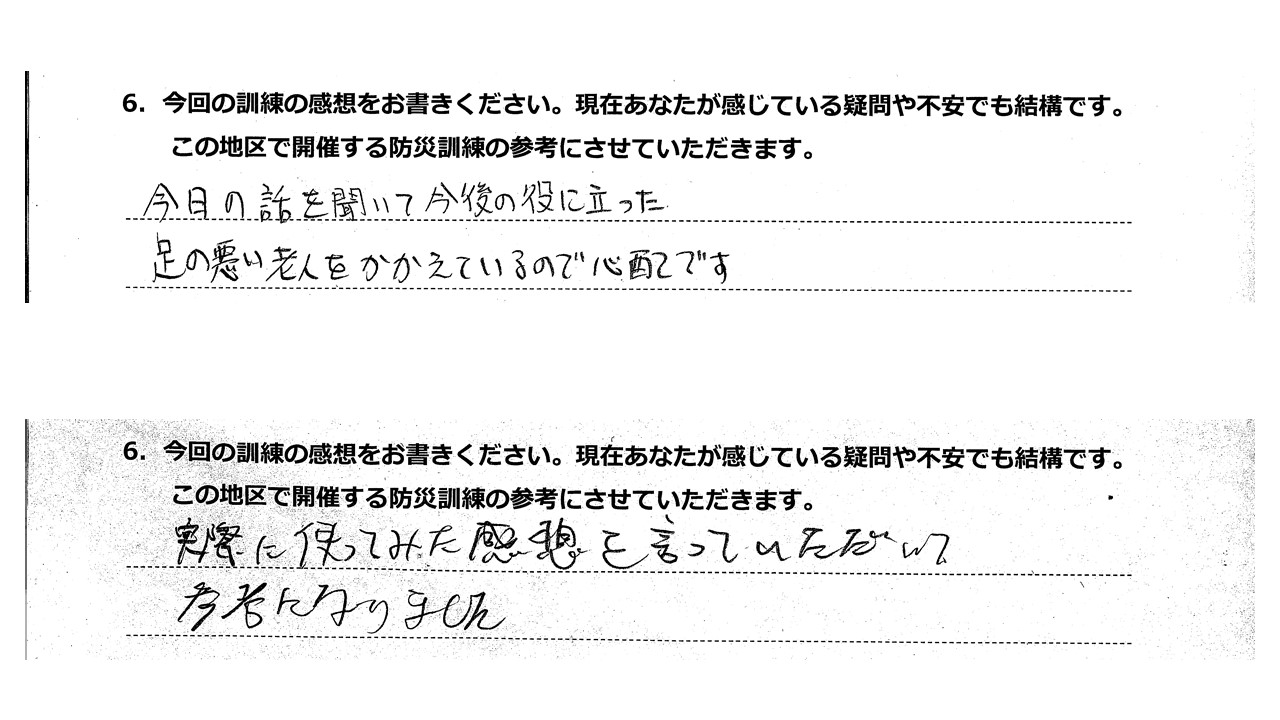 6. 今回の訓練の感想をお書きください。現在あなたが感じている疑問や不安でも結構です。
この地区で開催する防災訓練の参考にさせていただきます。
今日の話を聞いて今後の役に立った
足の悪い老人をかかえているので心配です
6. 今回の訓練の感想をお書きください。現在あなたが感じている疑問や不安でも結構です。
この地区で開催する防災訓練の参考にさせていただきます。
実際に使ってみた感想を言っていただいて
参考になりました